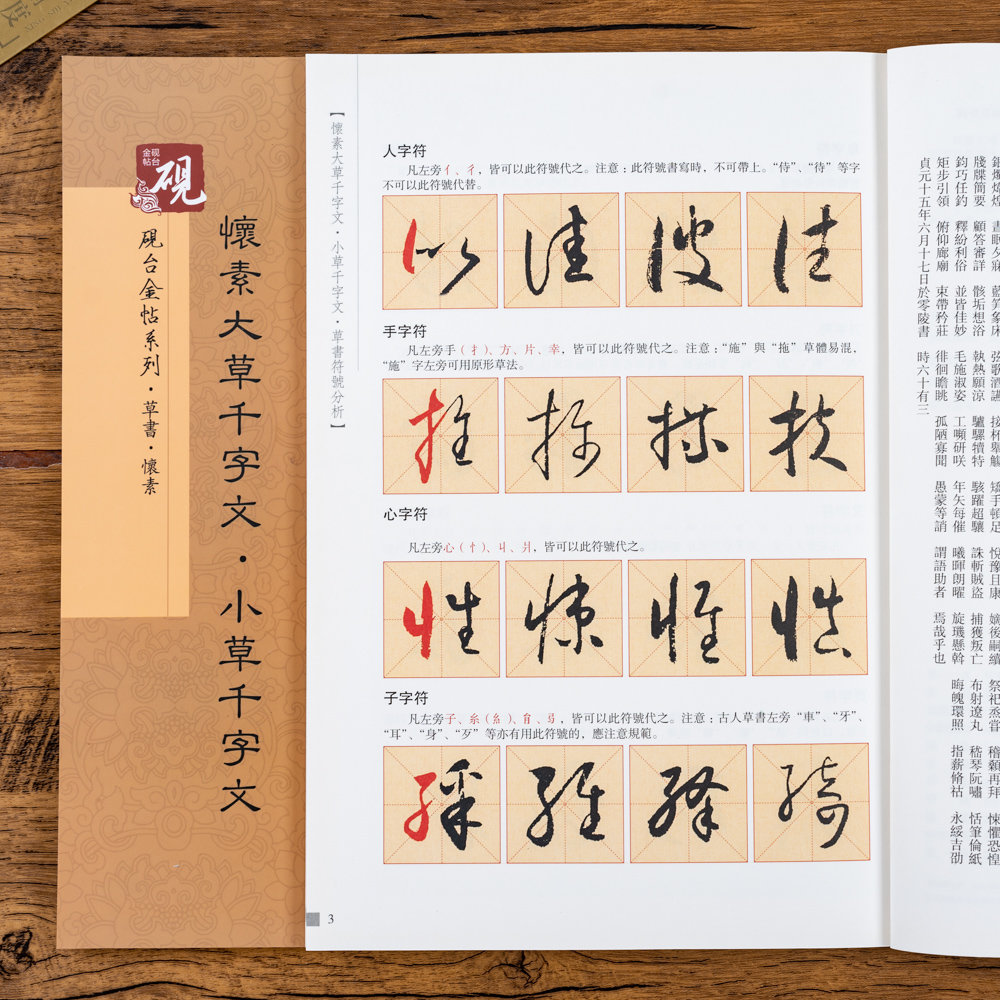 砚台
金帖
砚
硯台金帖系列·草書·懷素
懷素大草千字文·小草千字文
【懷素大草千字文·小草千字文·草書符號分析】
人字符
凡左旁亻、彳，皆可以此符號代之。注意：此符號書寫時，不可帶上。“侍”、“待”等字
不可以此符號代替。
以 佳 彼 往
手字符
凡左旁手（扌）、方、片、幸，皆可以此符號代之。注意：“施”與“拖”草體易混，
“施”字左旁可用原形草法。
推
心字符
凡左旁心（忄）、丩、爿，皆可以此符號代之。
性 悚 惟 慎
子字符
凡左旁子、糸（糹）、㠯、弓，皆可以此符號代之。注意：古人草書左旁“車”、“牙”、
“耳”、“身”、“歹”等亦有用此符號的，應注意規範。
綵 維 絳 綺
3
銀燭煒煌 晝眠夕寐 藍筍象床 弦歌酒讌 接杯舉觴 矯手頓足 悅豫且康 嫡後嗣續 祭祀烝嘗 稽顙再拜 悚懼恐惶
牋牒簡要 顧答審詳 骸垢想浴 執熱願涼 驢騾犢特 駭躍超驤 誅斬賊盜 捕獲叛亡 布射遼丸 嵇琴阮嘯 恬筆倫紙
鈞巧任釣 釋紛利俗 並皆佳妙 毛施淑姿 工嚬研咲 年矢每催 曦暉朗曜 旋璣懸斡 晦魄環照 指薪脩祜 永綏吉劭
矩步引領 俯仰廊廟 束帶矜莊 徘徊瞻眺 孤陋寡聞 愚蒙等誚 謂語助者 焉哉乎也
貞元十五年六月十七日於零陵書 時六十有三